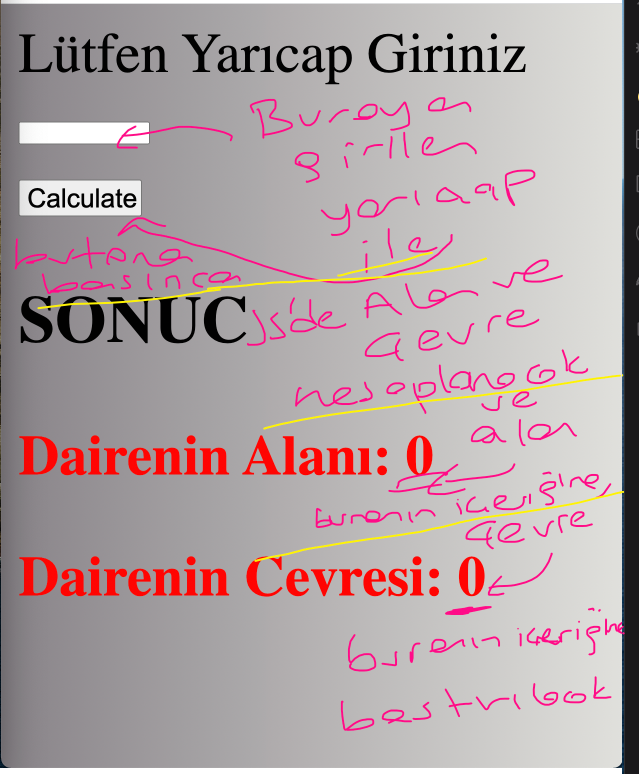 Lütfen Yarıcap Giriniz
Buraya
girilen
yarıçap
ile
Calculate
butona
basınca
SONUC
Js'de Alan ve
Çevre
hesaplanacak
ve
alan
Dairenin Alanı: 0
buranın içeriğine,
Çevre
Dairenin Cevresi: 0
buranın içeriğine
bastırılacak